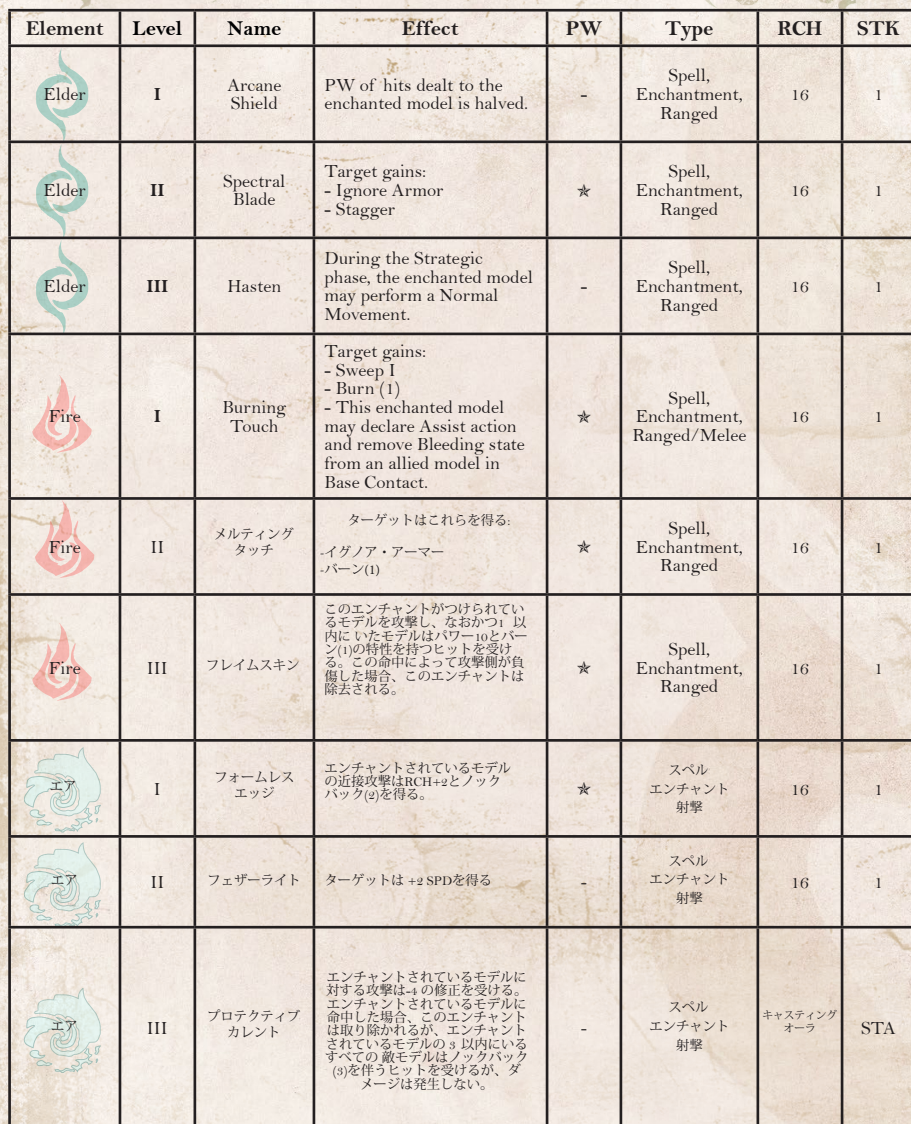 Element Level Name Effect PW Type RCH STK
Elder I Arcane Shield PW of hits dealt to the enchanted model is halved. - Spell, Enchantment, Ranged 16 1
Elder II Spectral Blade Target gains: - Ignore Armor - Stagger ✯ Spell, Enchantment, Ranged 16 1
Elder III Hasten During the Strategic phase, the enchanted model may perform a Normal Movement. - Spell, Enchantment, Ranged 16 1
Fire I Burning Touch Target gains: - Sweep I - Burn (1) - This enchanted model may declare Assist action and remove Bleeding state from an allied model in Base Contact. ✯ Spell, Enchantment, Ranged/Melee 16 1
Fire II メルティングタッチ ターゲットはこれらを得る: -イグノア・アーマー -バーン(1) ✯ Spell, Enchantment, Ranged 16 1
Fire III フレイムスキン このエンチャントがつけられているモデルを攻撃し、なおかつ1 以内に いたモデルはパワー10とバーン(1)の特性を持つヒットを受ける。この命中によって攻撃側が負傷した場合、このエンチャントは除去される。 ✯ Spell, Enchantment, Ranged 16 1
エア I フォームレスエッジ エンチャントされているモデルの近接攻撃はRCH+2とノックバック(2)を得る。 ✯ スペル エンチャント 射撃 16 1
エア II フェザーライト ターゲットは +2 SPDを得る - スペル エンチャント 射撃 16 1
エア III プロテクティブカレント エンチャントされているモデルに対する攻撃は-4 の修正を受ける。エンチャントされているモデルに命中した場合、このエンチャントは取り除かれるが、エンチャントされているモデルの 3 以内にいるすべての 敵モデルはノックバック(3)を伴うヒットを受けるが、ダメージは発生しない。 - スペル エンチャント 射撃 キャスティングオーラ STA